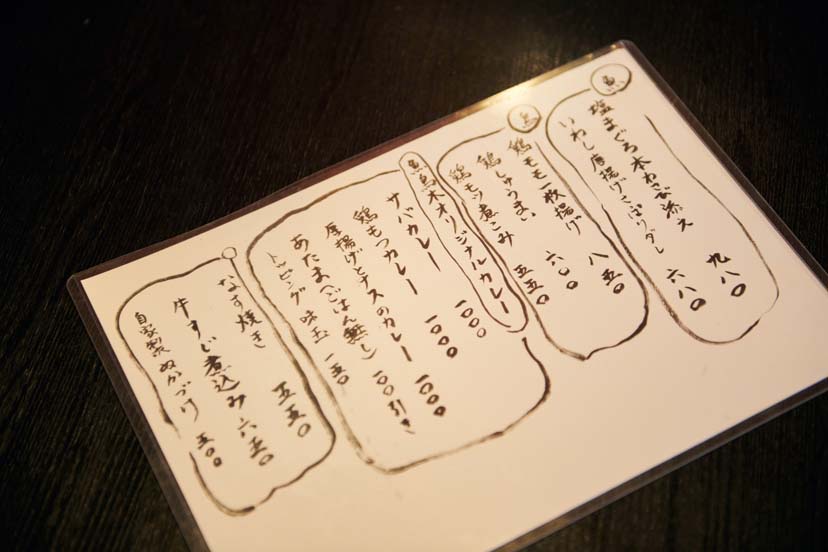 魚
塩まぐろ本わさび添え 九八〇
いわし厚揚げさっぱりダレ 六八〇
鳥
鶏モモ一枚揚げ 八五〇
鶏しゅうまい 六〇〇
鶏モツ煮こみ 五五〇
魚鳥木オリジナルカレー
サバカレー 一〇〇〇
鶏もつカレー 一〇〇〇
厚揚げとナスのカレー 一〇〇〇
あたま(ごはん無し) 一〇〇引き
トッピング 味玉 一五〇
なす焼き 五五〇
牛すい煮込み 六五〇
自家製ぬかづけ 五〇〇